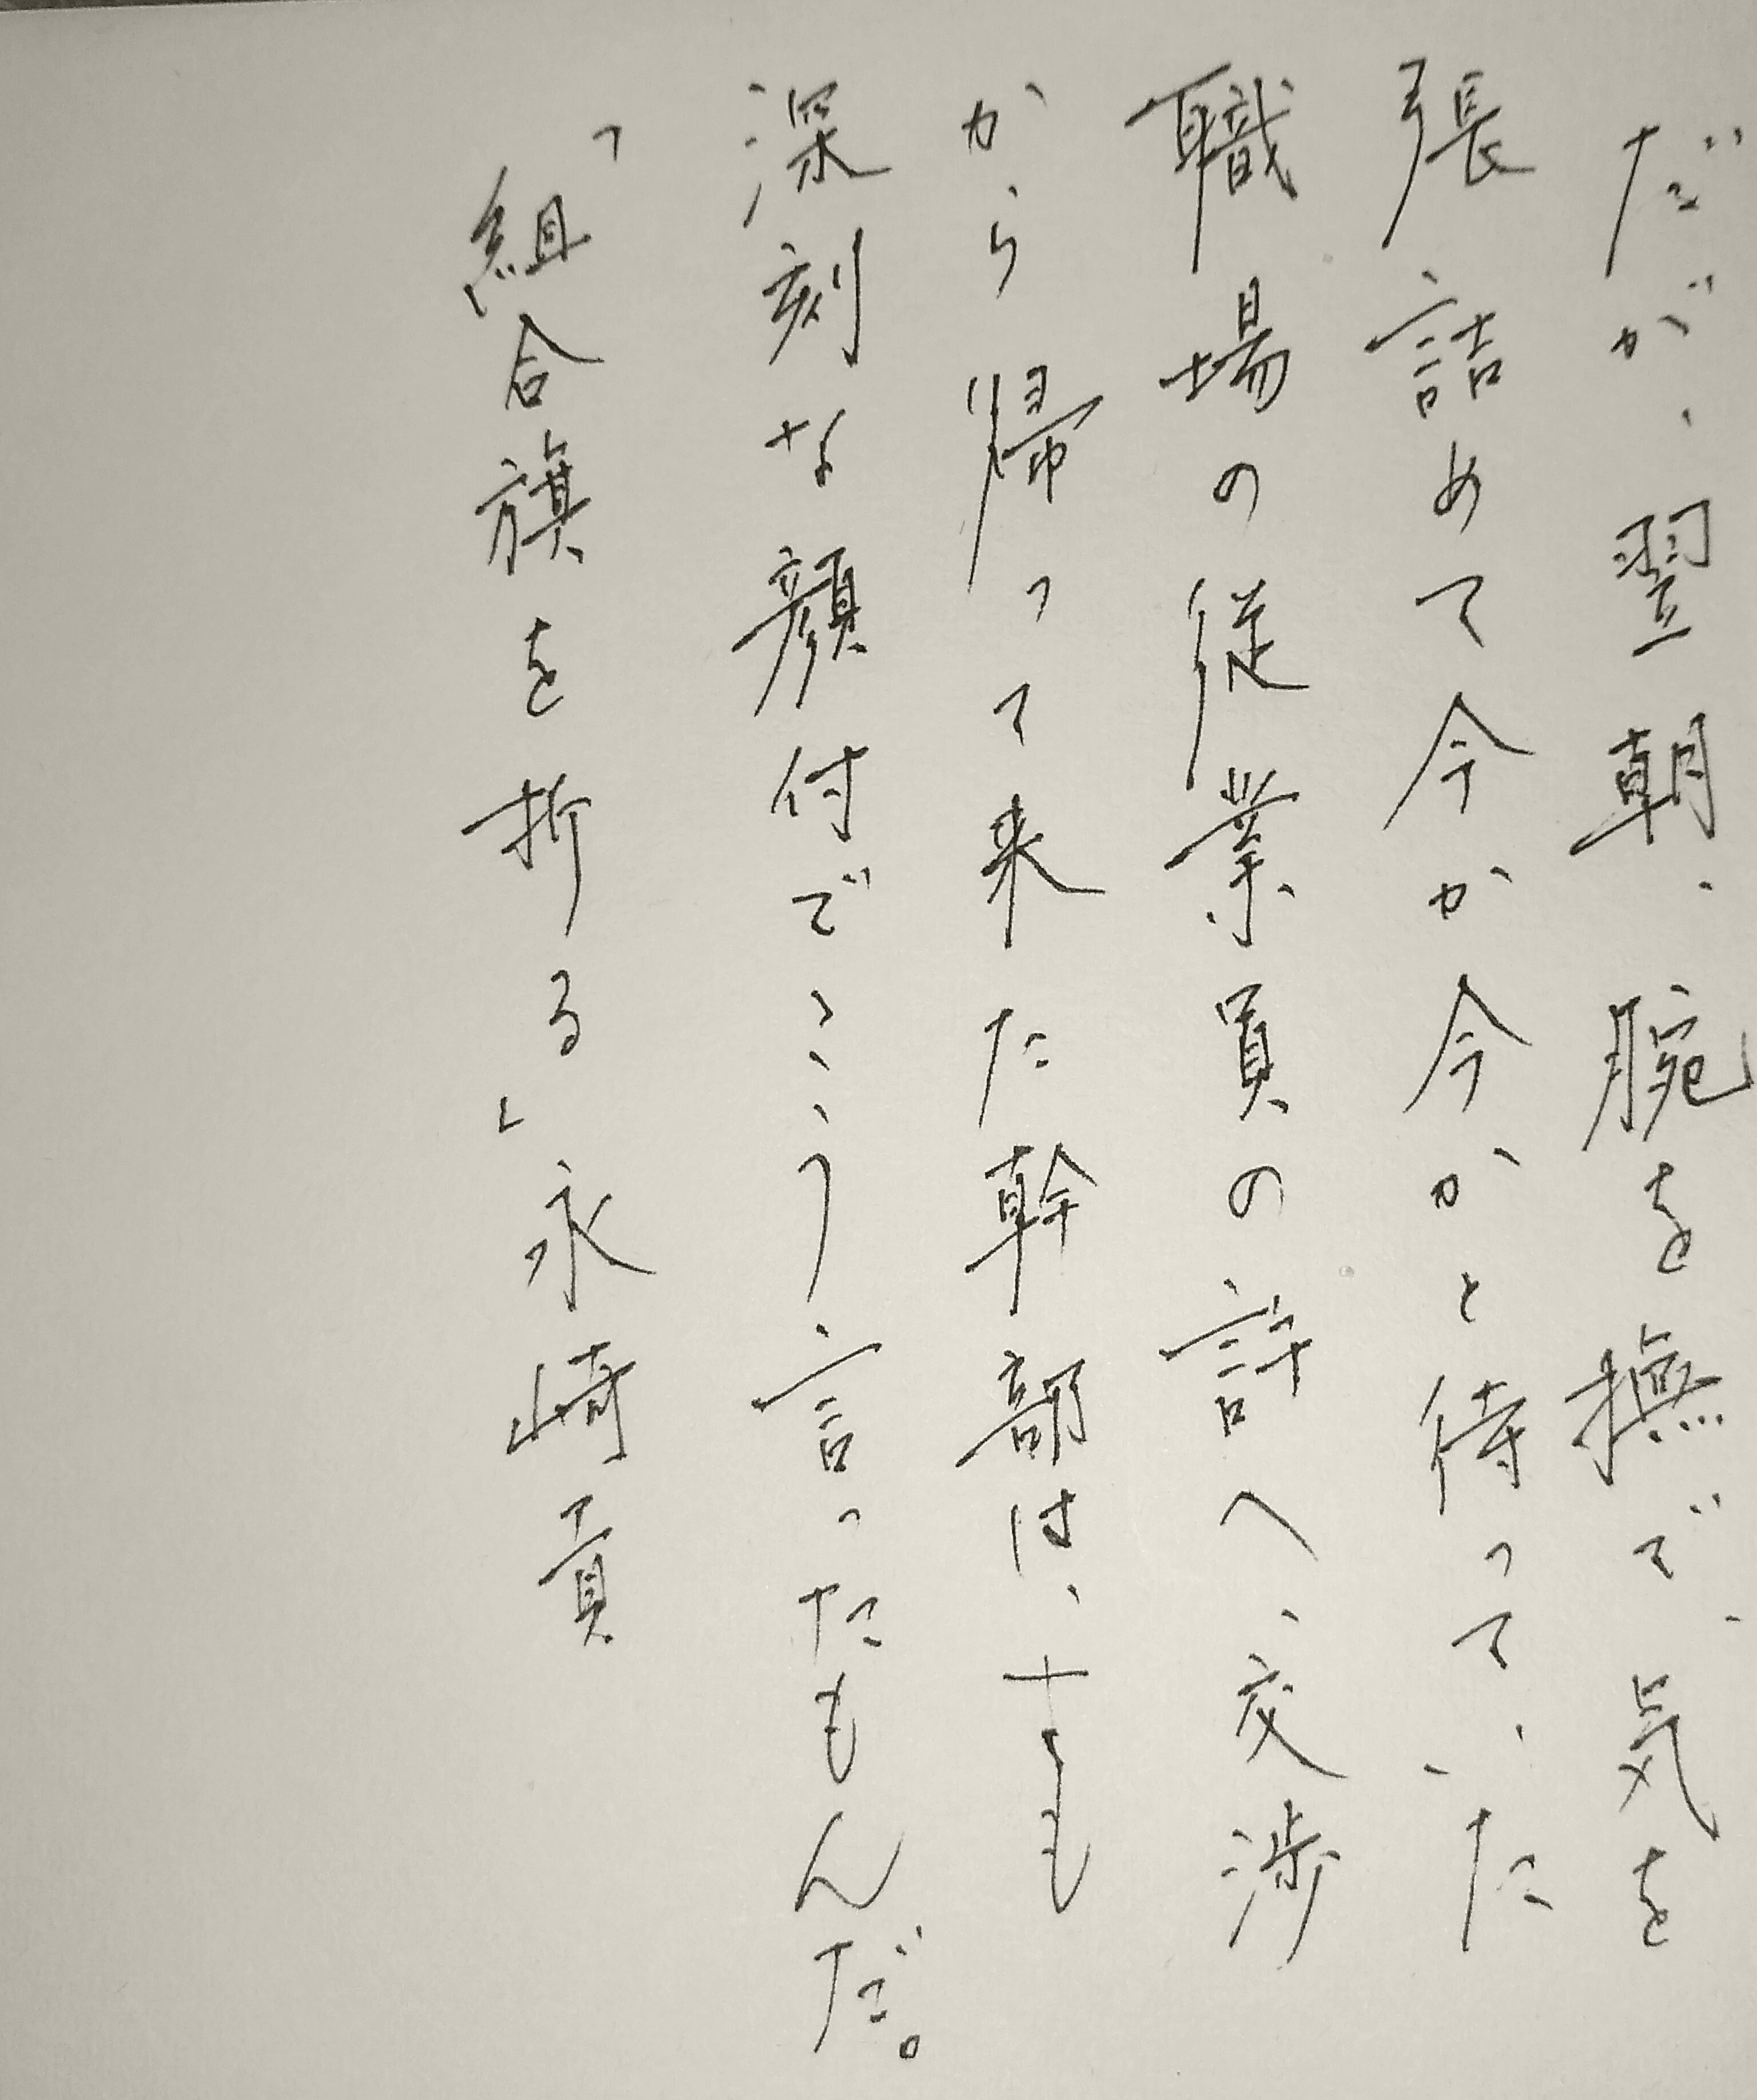 だが、翌朝、腕を撫で、気を
張詰めて今か今かと待っていた
職場の従業員の許へ、交渉
から帰って来た幹部は、さも
深刻な顔付でこう言ったもんだ。
「組合旗を折る」永崎貢